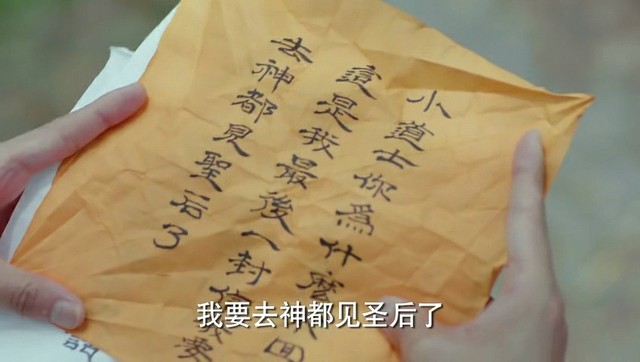 小道士你為什麼不回
這是我最後一封信我要
去神都見聖后了
我要去神都见圣后了